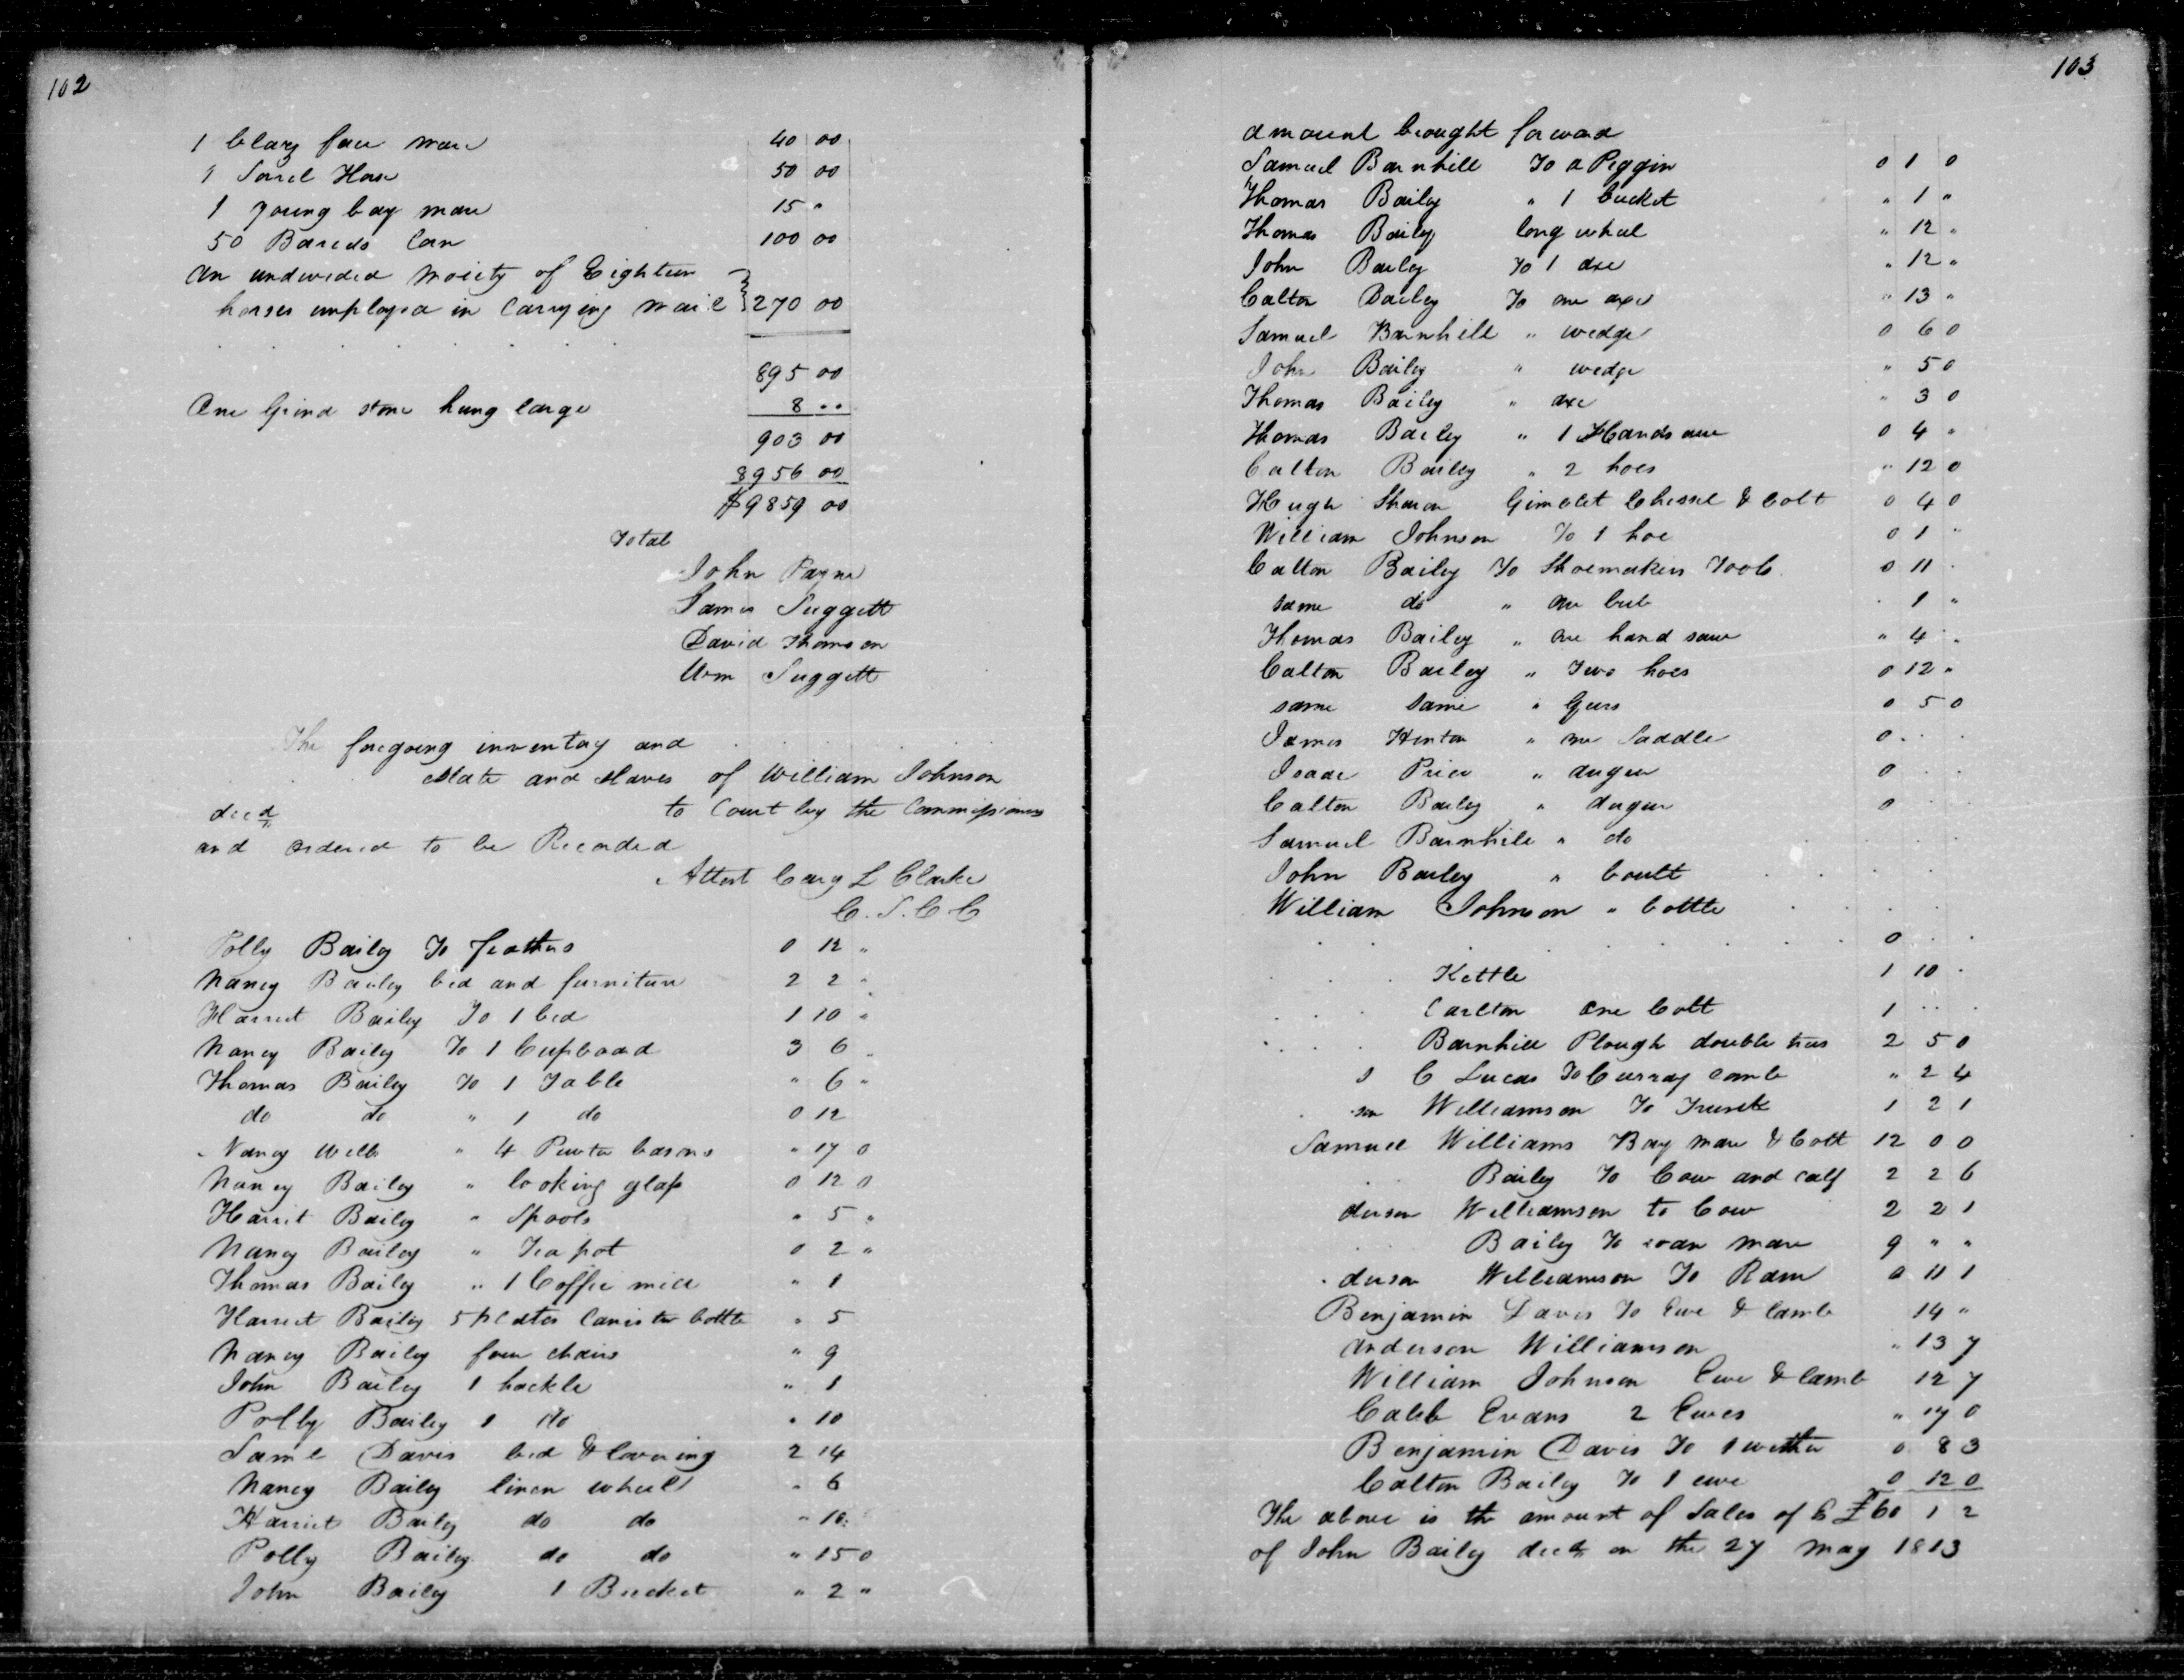 102
1 blaz face mare 40 00
1 Sorel Hose 50 00
1 young bay mare 15 "
50 Barels Corn 100 00
An undivided Moiety of Eighteen
horses employed in carrying mail } 270 00
895 00
One Grind stone hung large 8 ..
903 00
8956 00
$9859 00
Total
John Payne
James Suggett
David Thomson
Wm Suggett
The foregoing inventory and
estate and slaves of William Johnson
decd to Court by the Commissioners
and ordered to be Recorded
Attest Cary L Clarke
C. S. C C
Polly Baily To feathers 0 12 "
Nancy Bailey bed and furniture 2 2 "
Harriet Bailey To 1 bed 1 10 "
Nancy Bailey To 1 Cupboard 3 6 "
Thomas Bailey To 1 Table " 6 "
do do " 1 do 0 12
Nancy Wells " 4 Pewter basons " 17 0
Nancy Bailey " looking glass 0 12 0
Harrit Bailey " Spools " 5 "
Nancy Bailey " Tea pot 0 2 "
Thomas Bailey " 1 Coffie mill " 1
Harriet Bailey 5 plates Canister bottle " 5
Nancy Bailey four chairs " 9
John Bailey 1 hackle " 1
Polly Bailey 1 do " 10
Saml Davis bed & covering 2 14
Nancy Bailey linen wheel " 6
Harriet Bailey do do " 16
Polly Bailey do do " 15 0
John Bailey 1 Bucket " 2 "
103
amount brought forward
Samuel Barnhill To a Piggin 0 1 0
Thomas Bailey " 1 bucket " 1 "
Thomas Bailey long wheel " 12 "
John Bailey To 1 axe " 12 "
Calton Bailey To one axe " 13 "
Samuel Barnhill " wedge 0 6 0
John Bailey " wedge " 5 0
Thomas Bailey " axe " 3 0
Thomas Bailey " 1 Handsaw 0 4 "
Calton Bailey " 2 hoes " 12 0
Hugh Sharon Gimblet Chissel & bolt 0 4 0
William Johnson To 1 hoe 0 1 "
Calton Bailey To Shoemakers Tools 0 11
same do " one 1 "
Thomas Bailey " one hand saw " 4 "
Calton Bailey " Two hoes 0 12 "
same same " Gears 0 5 0
James Henton " one Saddle 0
Isaac Price " auger 0
Calton Bailey " Auger 0
Samuel Barnhill " do
John Bailey " Coult
William Johnson " bottle
0
Kettle 1 10
Carlton one Colt 1
Barnhill Plough double trees 2 5 0
C Lucas To Curray comb " 2 4
son Williamson To Trunk 1 2 1
Samuel Williams Bay mare & Colt 12 0 0
Bailey To Cow and calf 2 2 6
derson Williamson to Cow 2 2 1
Bailey To roan mare 9 " "
derson Williamson To Ram 0 11 1
Benjamin Davis To Ewe & lamb 14 "
Anderson Williamson " 13 7
William Johnson Ewe & lamb 12 7
Caleb Evans 2 Ewes " 17 0
Benjamin Davis To 1 wether 0 8 3
Calton Bailey To 1 ewe 0 12 0
The above is the amount of Sales of E £60 1 2
of John Bailey decd on the 27 May 1813